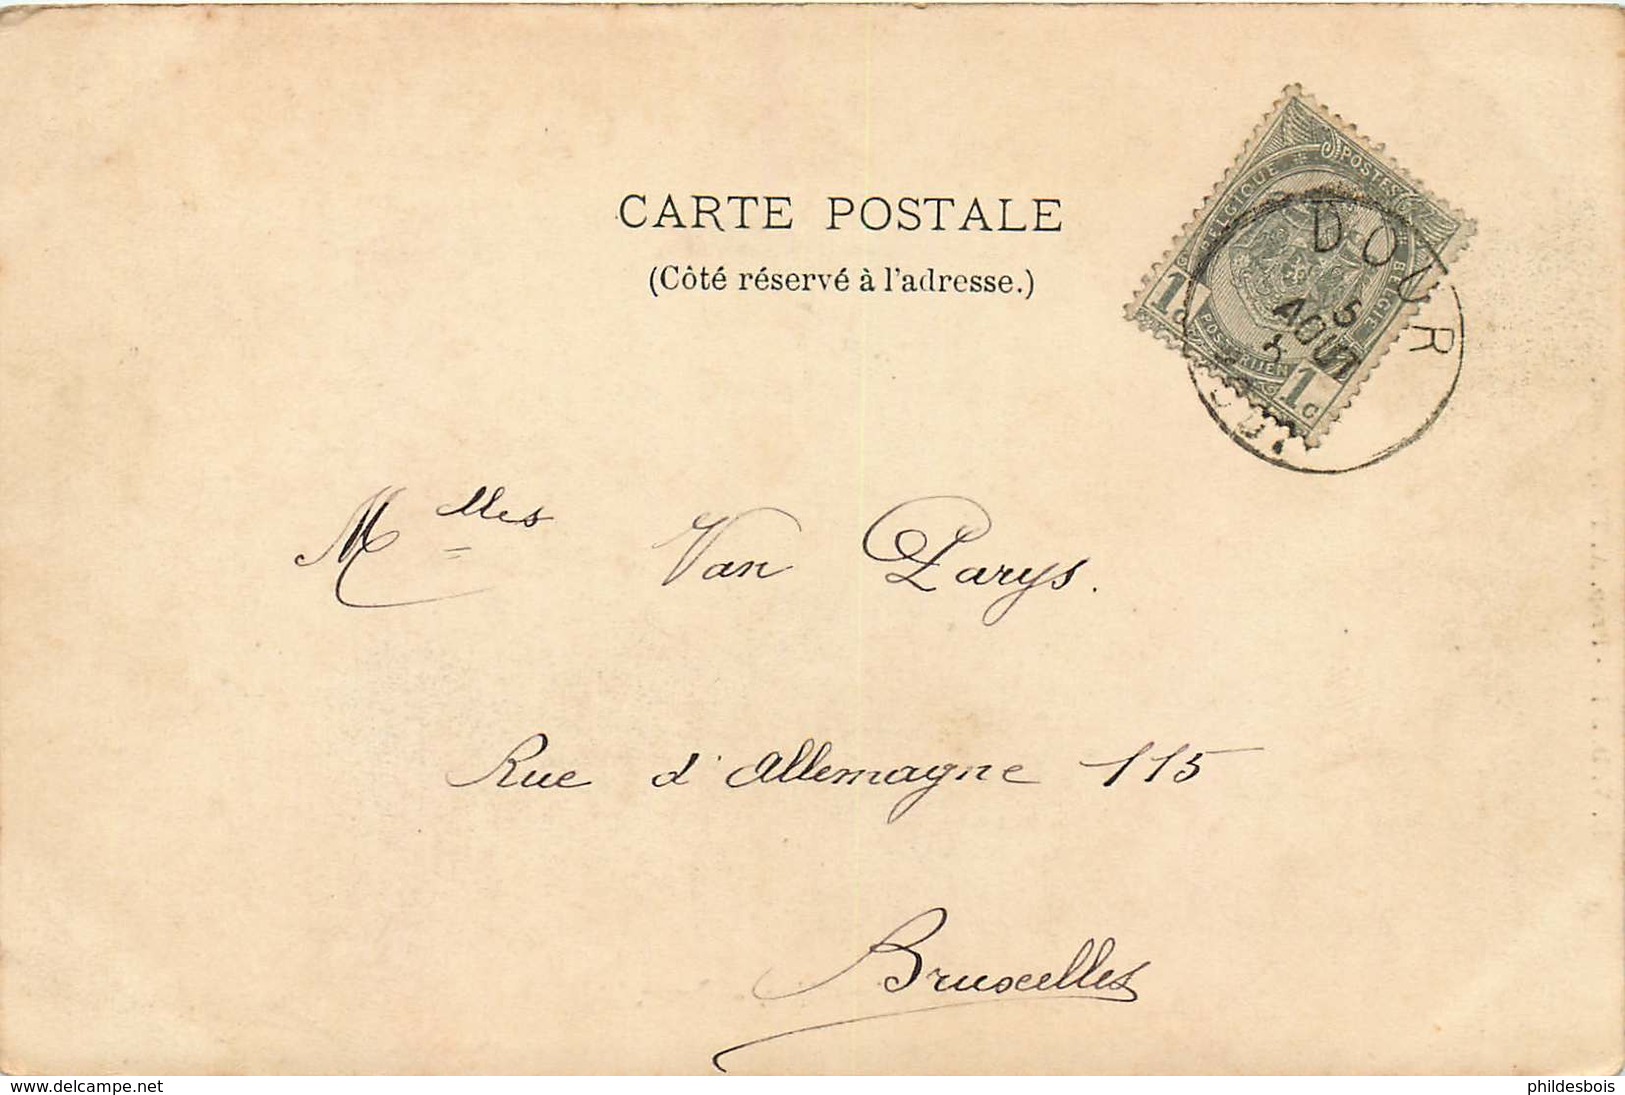 CARTE POSTALE
(Côté réservé à l'adresse.)
BELGIQUE POSTES
BELGIË POSTERIJEN
1 c 1 c
DOUR
6
AOUT
Mlles Van Parys.
Rue d'Allemagne 115
Bruxelles
www.delcampe.net
phildesbois